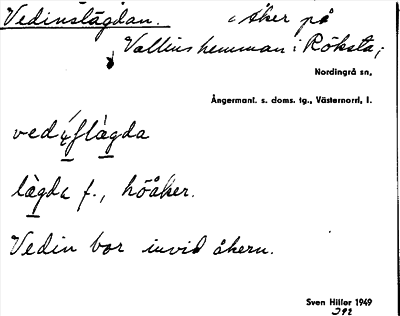 Vedinslägdan. Åker på
Vallins hemman i Röksta,
Nordingrå sn,
Ångermanl. s. doms. tg., Västernorrl, l.
lägda f., höåker.
Vedin bor invid åkern.
Sven Hillor 1949